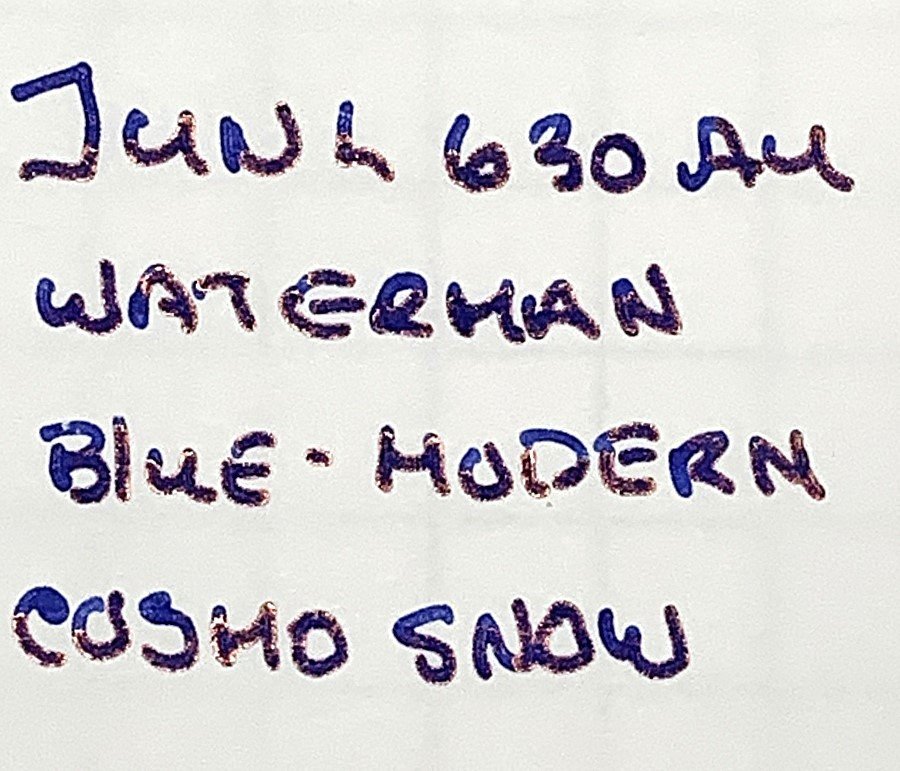 JUN 4 630 AM
WATERMAN
BLUE - MODERN
COSMO SNOW